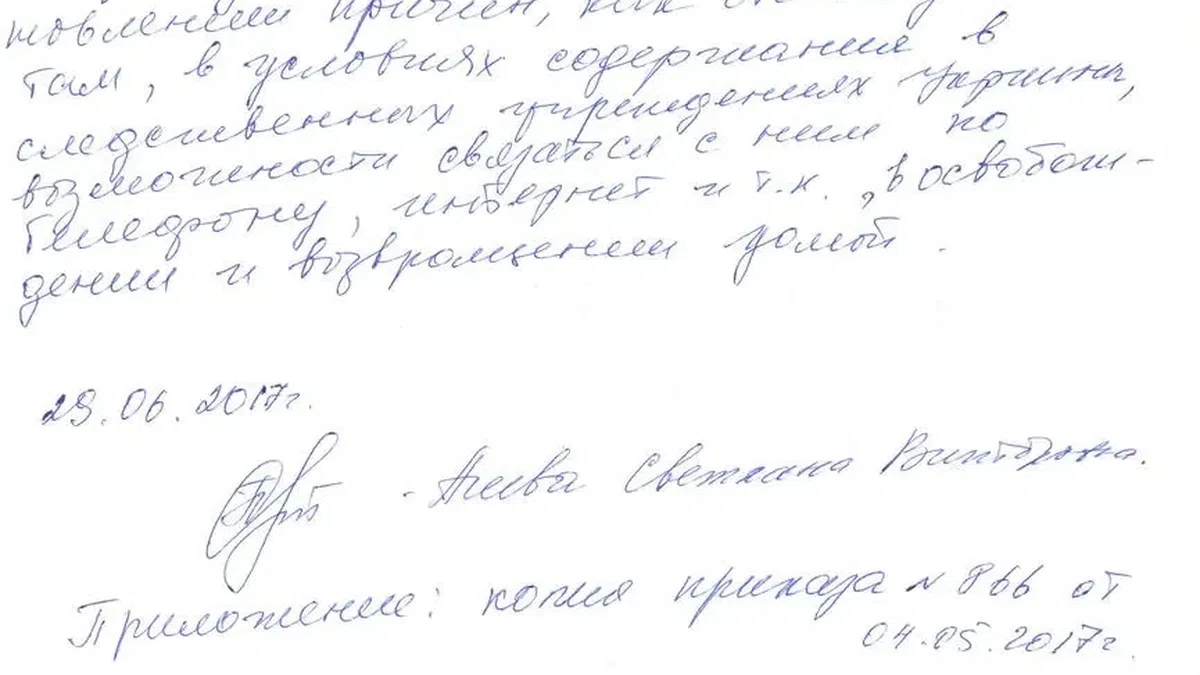 причин, как
там, в условиях содержания в
следственных учреждениях Украины,
возможности связаться с ним по
телефону, интернет и т.к., в освобож-
дении и возвращении домой.
29.06.2017г.
- Агеева Светлана Викторовна.
Приложение: копия приказа N 866 от
04.05.2017г.